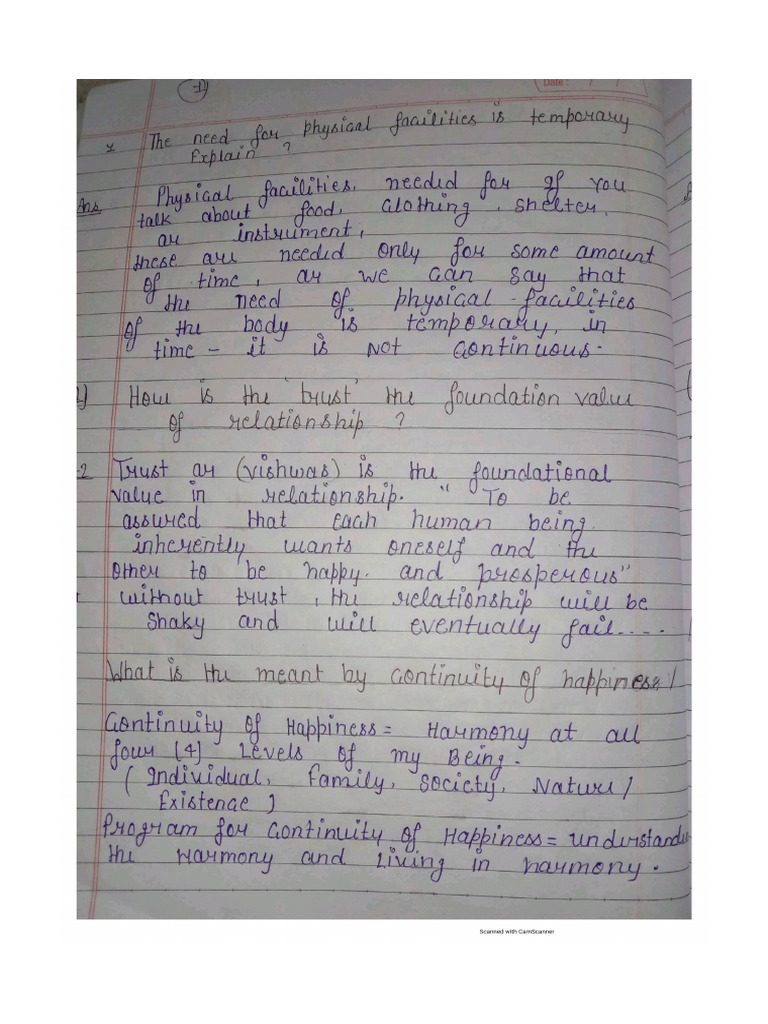 1)
Date : / /
x The need for physical facilities is temporary
Explain ?
Ans Physical facilities, needed for If you
talk about food, clothing, shelter,
or instrument,
these are needed only for some amount
of time, or we can say that
the need of physical facilities
of the body is temporary, in
time - it is not continuous.
2) How is the 'trust' the foundation value
of relationship ?
-2 Trust or (vishwas) is the foundational
value in relationship. " To be
assured that each human being
inherently wants oneself and the
other to be happy. and prosperous"
without trust, the relationship will be
shaky and will eventually fail....
What is the meant by continuity of happiness/
Continuity of Happiness = Harmony at all
four [4] Levels of my Being.
( Individual, Family, Society, Nature/
Existence )
Program for Continuity of Happiness = understande
the Harmony and Living in harmony.
Scanned with CamScanner